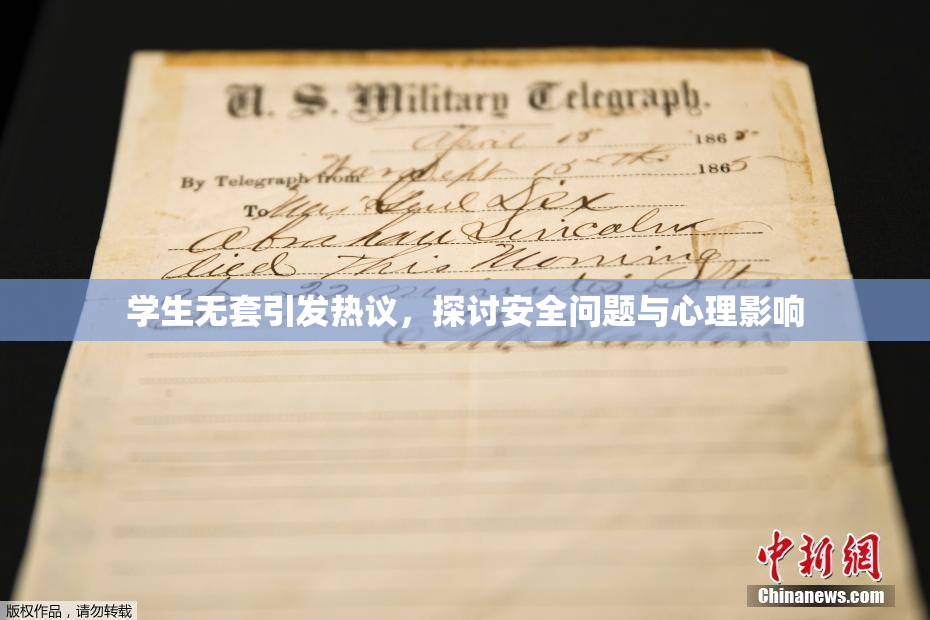 U. S. Military Telegraph.
April 15 1865
By Telegraph from War Dept 15th 1865
To Maj Genl Dix
Abraham Lincoln
died This Morning
at 22 minutes after
学生无套引发热议，探讨安全问题与心理影响
E. M. Stanton
中新网
Chinanews.com
版权作品，请勿转载